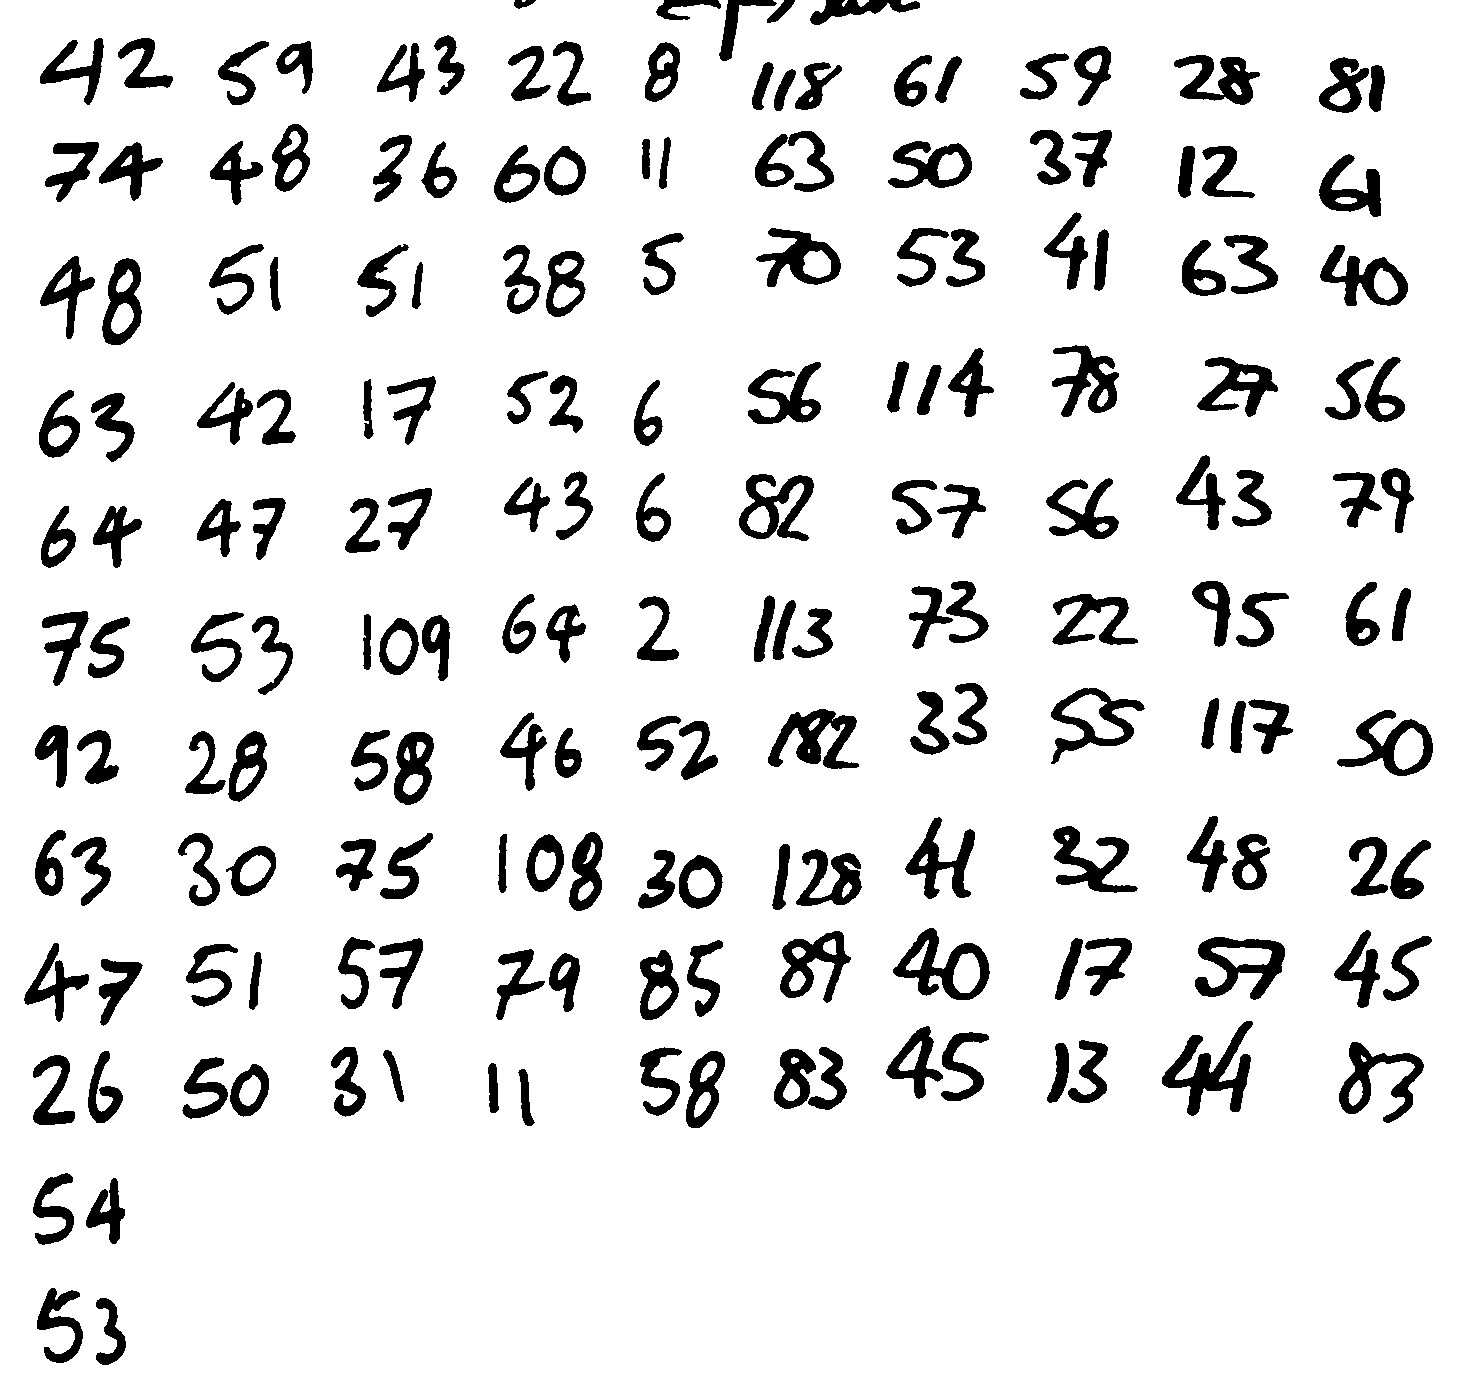 42 59 43 22 8 118 61 59 28 81
74 48 36 60 11 63 50 37 12 61
48 51 51 38 5 70 53 41 63 40
63 42 17 52 6 56 114 78 27 56
64 47 27 43 6 82 57 56 43 79
75 53 109 64 2 113 73 22 95 61
92 28 58 46 52 182 33 55 117 50
63 30 75 108 30 128 41 32 48 26
47 51 57 79 85 89 40 17 57 45
26 50 31 11 58 83 45 13 44 83
54
53